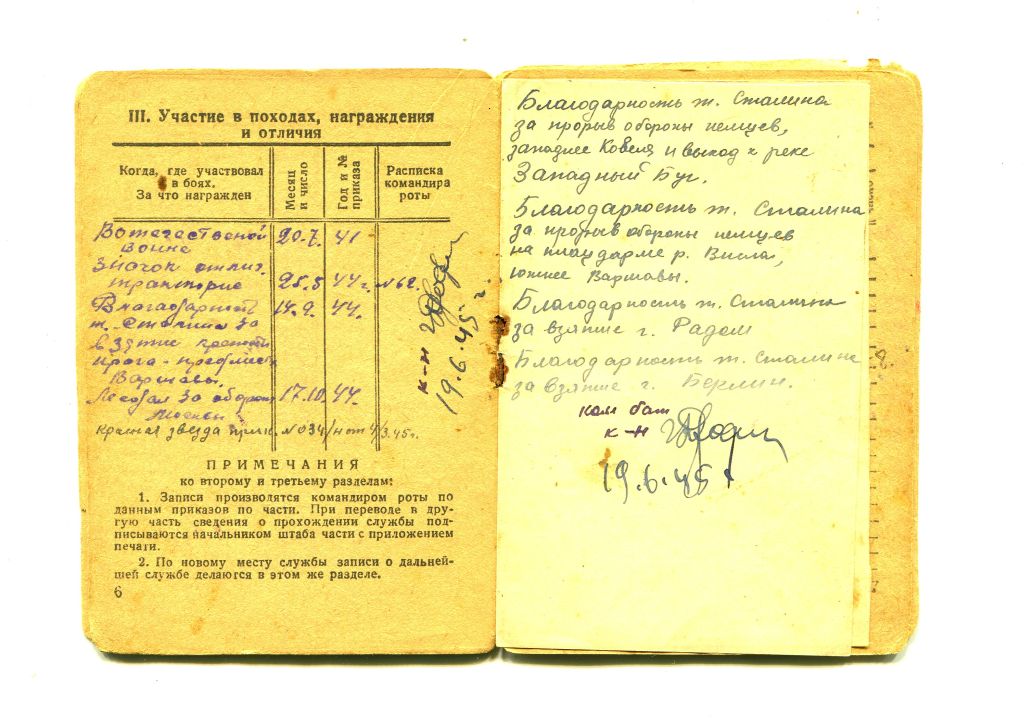 III. Участие в походах, награждения
и отличия
Когда, где участвовал
в боях.
За что награжден
Месяц
и число
Год и №
приказа
Расписка
командира
роты
В отечественой 20.7. 41
войне
Значок отлич.
тракторис 25.5 44 г. №62.
Благодарност 14.9. 44.
т. Сталина за
взятие крепости
Прага - предмест
Варшавы.
Медаль за оборон 17.10. 44.
Москвы
Красная звезда прик. №034/н от 4/3.45г.
к-н
19.6.45 г.
ПРИМЕЧАНИЯ
ко второму и третьему разделам:
1. Записи производятся командиром роты по
данным приказов по части. При переводе в дру-
гую часть сведения о прохождении службы под-
писываются начальником штаба части с приложением
печати.
2. По новому месту службы записи о дальней-
шей службе делаются в этом же разделе.
6
Благодарность т. Сталина
за прорыв обороны немцев,
западнее Ковеля и выход к реке
Западный Буг.
Благодарность т. Сталина
за прорыв обороны немцев
на плацдарме р. Висла,
южнее Варшавы.
Благодарность т. Сталина
за взятие г. Радом
Благодарность т. Сталина
за взятие г. Берлин.
ком бат
к-н
19.6.45 г